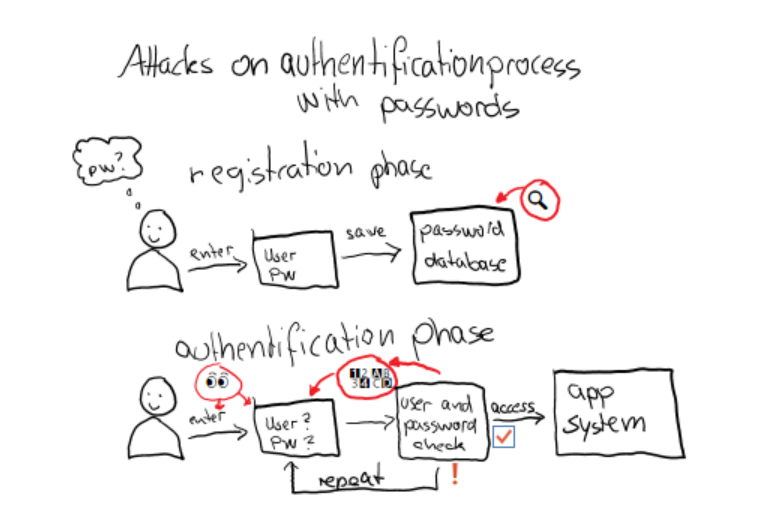 Attacks on authentificationprocess
with passwords
PW?
registration phase
enter
User
PW
save
password
database
authentification phase
enter
User?
PW?
12 AB
34 CD
user and
password
check
access
app
system
repeat
!